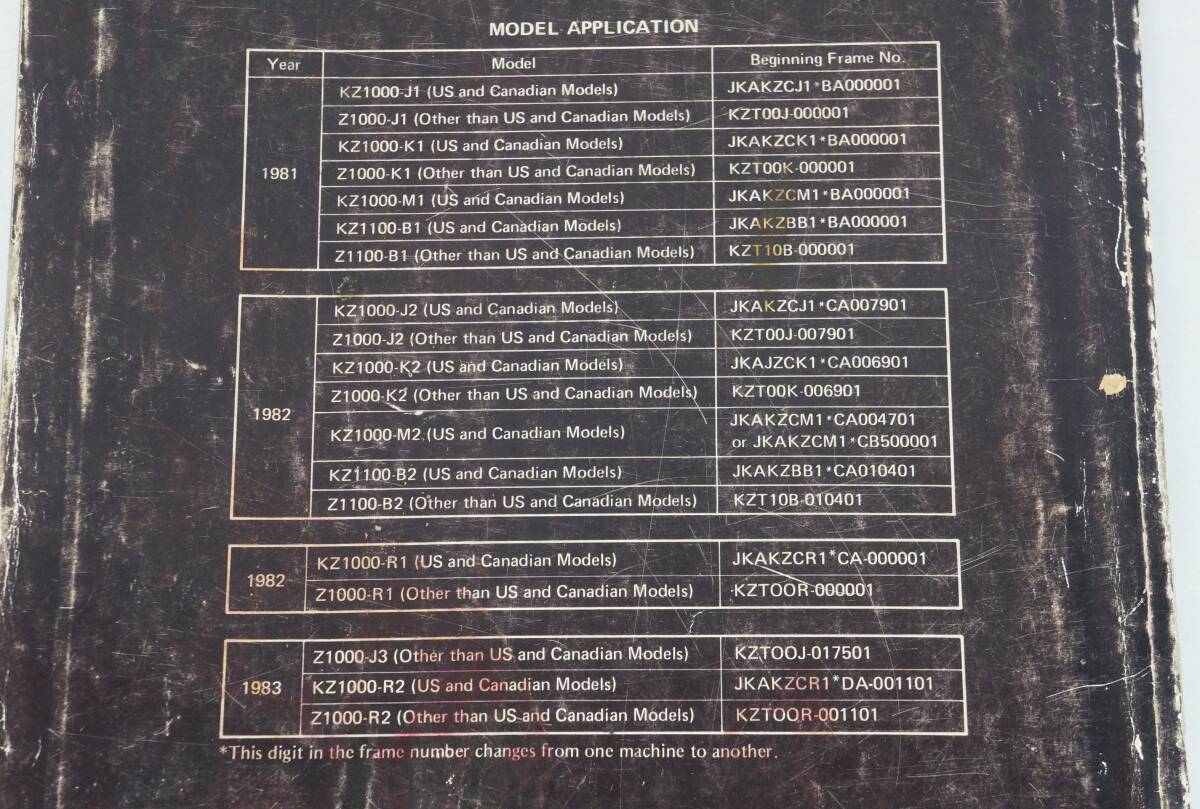 MODEL APPLICATION
Year Model Beginning Frame No.
1981
KZ1000-J1 (US and Canadian Models) JKAKZCJ1*BA000001
Z1000-J1 (Other than US and Canadian Models) KZT00J-000001
KZ1000-K1 (US and Canadian Models) JKAKZCK1*BA000001
Z1000-K1 (Other than US and Canadian Models) KZT00K-000001
KZ1000-M1 (US and Canadian Models) JKAKZCM1*BA000001
KZ1100-B1 (US and Canadian Models) JKAKZBB1*BA000001
Z1100-B1 (Other than US and Canadian Models) KZT10B-000001
1982
KZ1000-J2 (US and Canadian Models) JKAKZCJ1*CA007901
Z1000-J2 (Other than US and Canadian Models) KZT00J-007901
KZ1000-K2 (US and Canadian Models) JKAJZCK1*CA006901
Z1000-K2 (Other than US and Canadian Models) KZT00K-006901
KZ1000-M2 (US and Canadian Models) JKAKZCM1*CA004701
or JKAKZCM1*CB500001
KZ1100-B2 (US and Canadian Models) JKAKZBB1*CA010401
Z1100-B2 (Other than US and Canadian Models) KZT10B-010401
1982
KZ1000-R1 (US and Canadian Models) JKAKZCR1*CA-000001
Z1000-R1 (Other than US and Canadian Models) KZTOOR-000001
1983
Z1000-J3 (Other than US and Canadian Models) KZTOOJ-017501
KZ1000-R2 (US and Canadian Models) JKAKZCR1*DA-001101
Z1000-R2 (Other than US and Canadian Models) KZTOOR-001101
*This digit in the frame number changes from one machine to another.